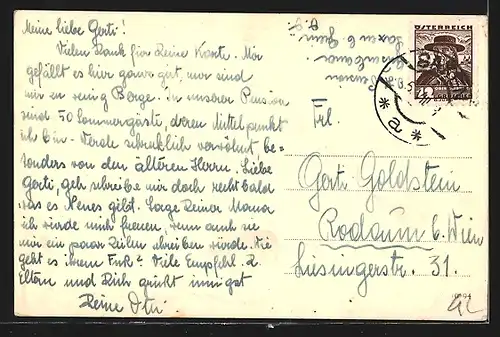 Meine liebe Gerti!
Vielen Dank für Deine Karte. Mir
gefällt es hier ganz gut, nur sind
mir zu wenig Berge. In unserer Pension
sind 50 Sommergäste, deren Mittelpunkt
ich bin. Werde schrecklich verwöhnt be-
sonders von den älteren Herrn. Liebe
Gerti, geh schreibe mir doch recht bald
was es Neues gibt. Sage Deiner Mama
ich würde mich freuen, wenn auch sie
mir ein paar Zeilen schreiben würde. Wie
geht es ihrem Fuß? Viele Empfehl. D.
Eltern und Dich grüßt innigst
Deine
ÖSTERREICH
12
* a *
Frl.
Gerti Goldstein
Rodaun b. Wien
Liesingerstr. 31.